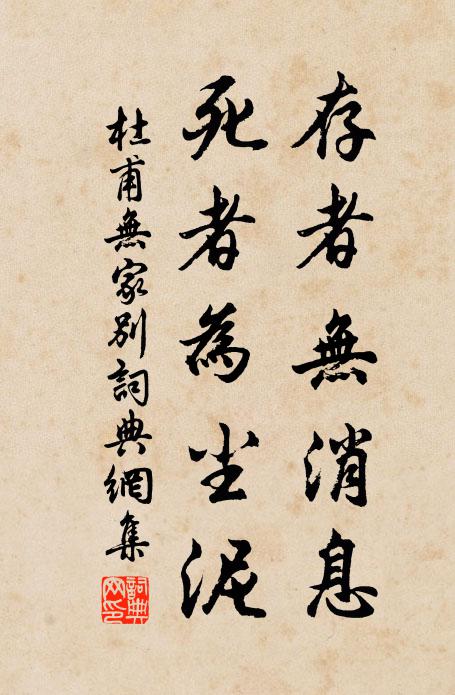 存者無消息
死者為尘泥
杜甫無家別詞典網集
詞典網印